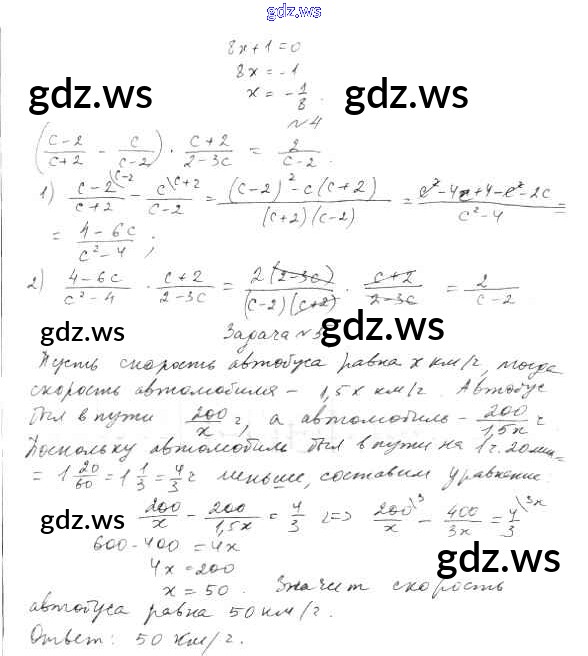 gdz.ws
8x+1=0
8x=-1
x = -1/8.
gdz.ws gdz.ws
№4
((c-2)/(c+2) - c/(c-2)) · (c+2)/(2-3c) = 2/(c-2).
1) (c-2\c-2)/(c+2) - (c\c+2)/(c-2) = ((c-2)²-c(c+2))/((c+2)(c-2)) = (c²-4c+4-c²-2c)/(c²-4) =
gdz.ws gdz.ws
= (4-6c)/(c²-4);
2) (4-6c)/(c²-4) · (c+2)/(2-3c) = (2(2-3c))/((c-2)(c+2)) · (c+2)/(2-3c) = 2/(c-2)
gdz.ws gdz.ws
Задача №5
Пусть скорость автобуса равна x км/ч, тогда
скорость автомобиля - 1,5x км/ч. Автобус
был в пути 200/x ч, а автомобиль - 200/1,5x ч
Поскольку автомобиль был в пути на 1 ч. 20 мин =
= 1 20/60 = 1 1/3 = 4/3 ч меньше, составим уравнение:
200/x - 200/1,5x = 4/3 <=> 200\3/x - 400/3x = 4\3x/3
gdz.ws gdz.ws
600-400 = 4x
4x = 200
x = 50. Значит скорость
автобуса равна 50 км/ч.
Ответ: 50 км/ч.